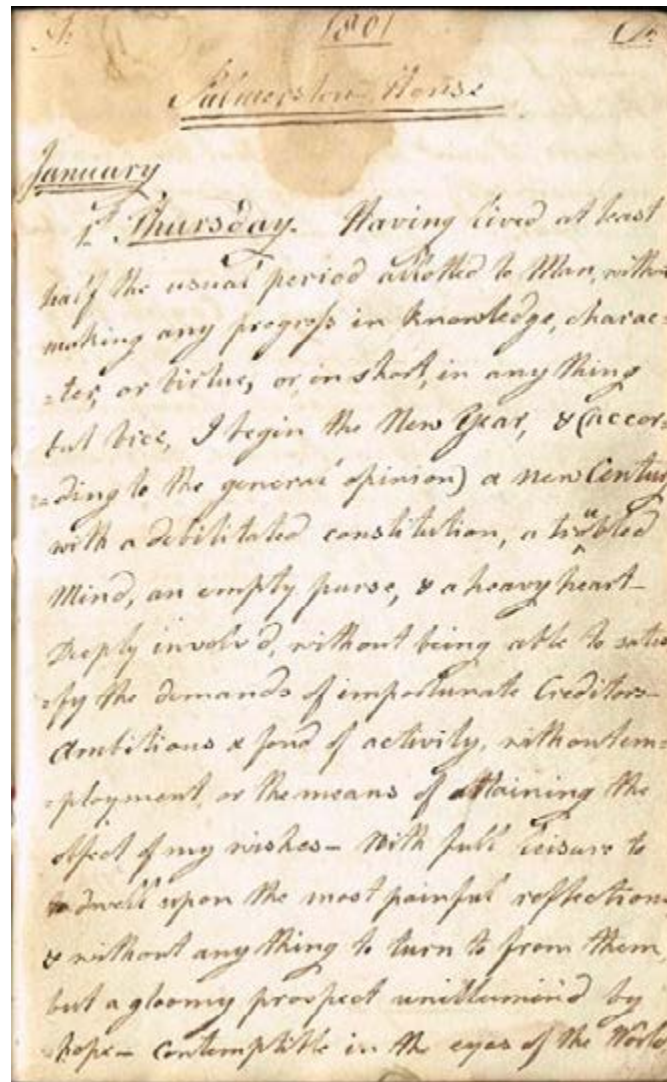 1801
Palmerston House
January
1st Thursday. Having lived at least
half the usual period allotted to Man, witho
making any progress in knowledge, charac=
=ter, or virtue, or, in short, in any thing
but vice, I begin the New Year, & (accor=
=ding to the general opinion) a new Century
with a debilitated constitution, a troubled
Mind, an empty purse, & a heavy heart—
Deply involv'd, without being able to satis
=fy the demands of importunate Creditors—
Ambitious & fond of activity, without em=
=ployment, or the means of attaining the
object of my wishes— With full leisure to
dwell upon the most painful reflections
& without any thing to turn to from them,
but a gloomy prospect unillumin'd by
hope— Contemptible in the eyes of the World